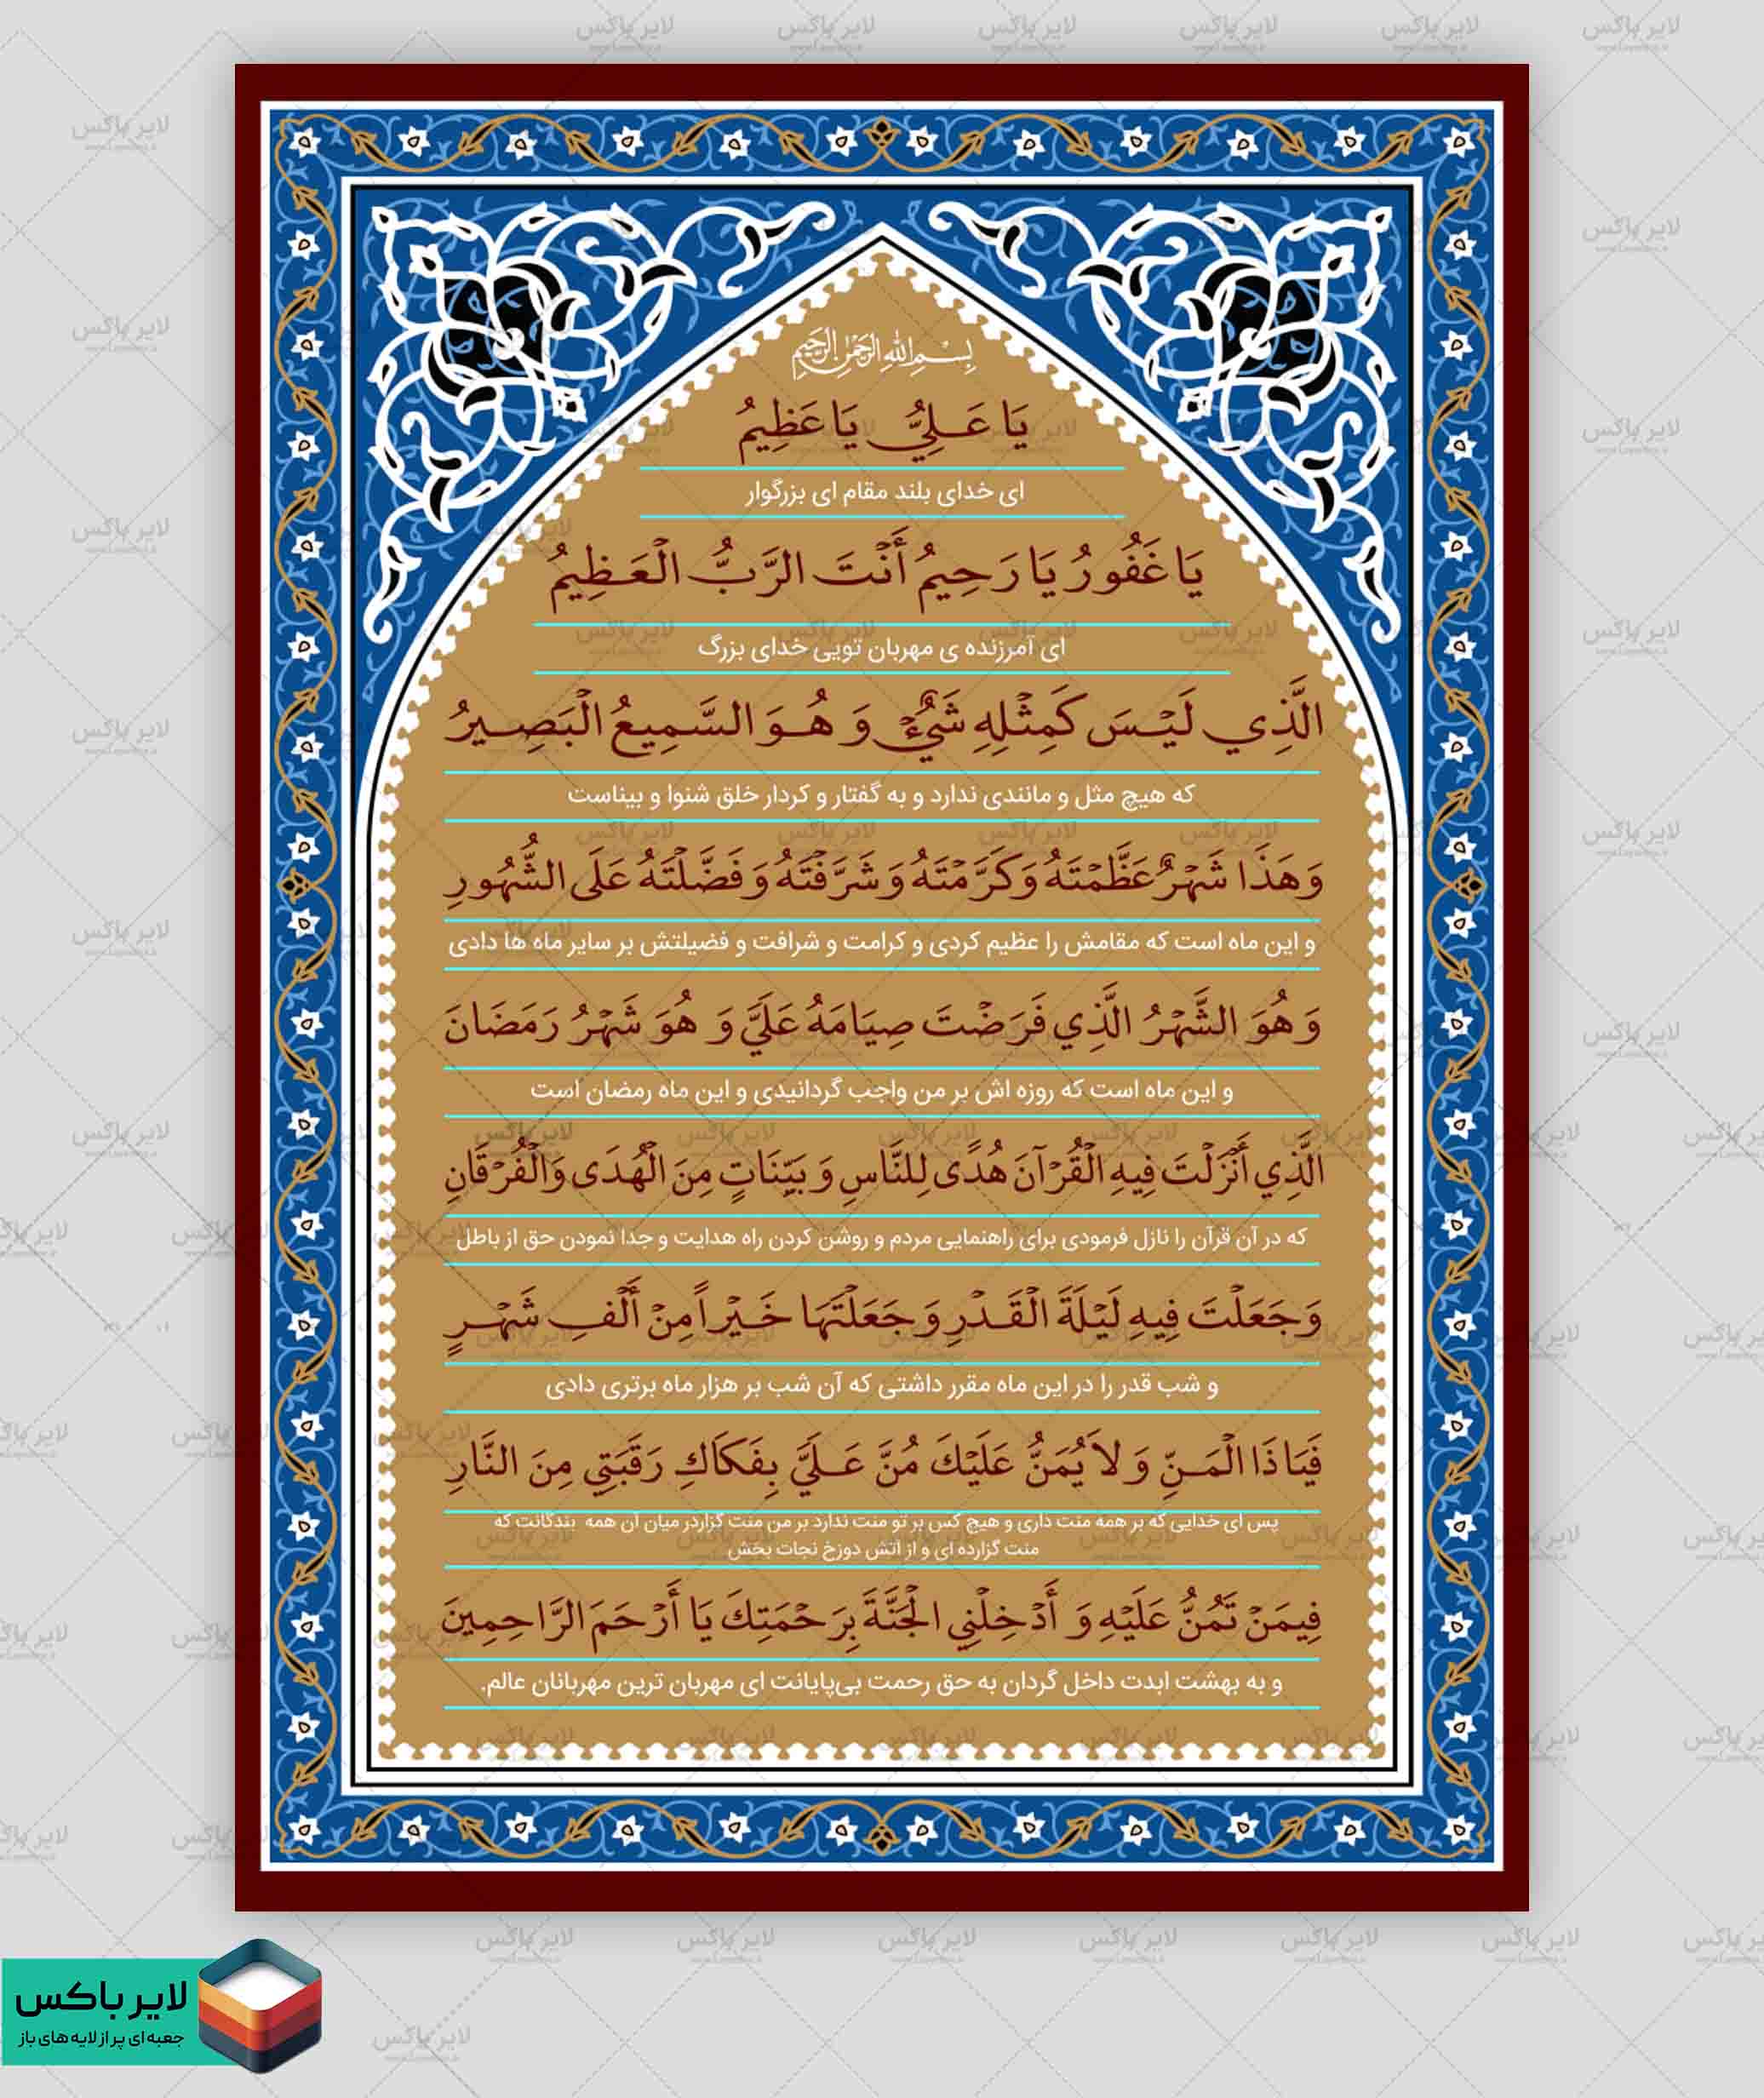 بِسْمِ اللهِ الرَّحْمٰنِ الرَّحِيمِ
يَا عَلِيُّ يَا عَظِيمُ
ای خدای بلند مقام ای بزرگوار
يَا غَفُورُ يَا رَحِيمُ أَنْتَ الرَّبُّ الْعَظِيمُ
ای آمرزنده ی مهربان تویی خدای بزرگ
الَّذِي لَيْسَ كَمِثْلِهِ شَيْءٌ وَ هُوَ السَّمِيعُ الْبَصِيرُ
که هیچ مثل و مانندی ندارد و به گفتار و کردار خلق شنوا و بیناست
وَ هَذَا شَهْرٌ عَظَّمْتَهُ وَ كَرَّمْتَهُ وَ شَرَّفْتَهُ وَ فَضَّلْتَهُ عَلَى الشُّهُورِ
و این ماه است که مقامش را عظیم کردی و کرامت و شرافت و فضیلتش بر سایر ماه ها دادی
وَ هُوَ الشَّهْرُ الَّذِي فَرَضْتَ صِيَامَهُ عَلَيَّ وَ هُوَ شَهْرُ رَمَضَانَ
و این ماه است که روزه اش بر من واجب گردانیدی و این ماه رمضان است
الَّذِي أَنْزَلْتَ فِيهِ الْقُرْآنَ هُدًى لِلنَّاسِ وَ بَيِّنَاتٍ مِنَ الْهُدَى وَالْفُرْقَانِ
که در آن قرآن را نازل فرمودی برای راهنمایی مردم و روشن کردن راه هدایت و جدا نمودن حق از باطل
وَ جَعَلْتَ فِيهِ لَيْلَةَ الْقَدْرِ وَ جَعَلْتَهَا خَيْراً مِنْ أَلْفِ شَهْرٍ
و شب قدر را در این ماه مقرر داشتی که آن شب بر هزار ماه برتری دادی
فَيَا ذَا الْمَنِّ وَ لاَ يُمَنُّ عَلَيْكَ مُنَّ عَلَيَّ بِفَكَاكِ رَقَبَتِي مِنَ النَّارِ
پس ای خدایی که بر همه منت داری و هیچ کس بر تو منت ندارد بر من منت گزاردر میان آن همه بندگانت که
منت گزارده ای و از آتش دوزخ نجات بخش
فِيمَنْ تَمُنُّ عَلَيْهِ وَ أَدْخِلْنِي الْجَنَّةَ بِرَحْمَتِكَ يَا أَرْحَمَ الرَّاحِمِينَ
و به بهشت ابدت داخل گردان به حق رحمت بی‌پایانت ای مهربان ترین مهربانان عالم.
لایر باکس
جعبه ای پر از لایه های باز